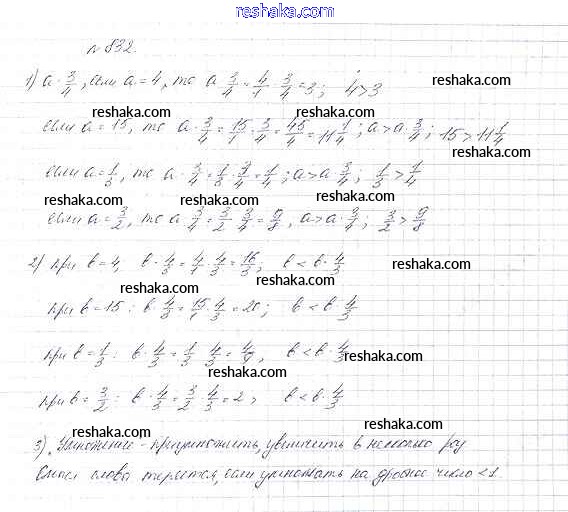 reshaka.com
№ 832.
1) a · 3/4, если a = 4, то a · 3/4 = 4/1 · 3/4 = 3; 4 > 3
reshaka.com
reshaka.com
если a = 15, то a · 3/4 = 15/1 · 3/4 = 45/4 = 11 1/4; a > a · 3/4; 15 > 11 1/4
reshaka.com
если a = 1/3, то a · 3/4 = 1/3 · 3/4 = 1/4; a > a · 3/4; 1/3 > 1/4
reshaka.com
reshaka.com
если a = 3/2, то a · 3/4 = 3/2 · 3/4 = 9/8, a > a · 3/4; 3/2 > 9/8
reshaka.com
2) при b = 4, b · 4/3 = 4/1 · 4/3 = 16/3, b < b · 4/3
reshaka.com
reshaka.com
при b = 15: b · 4/3 = 15/1 · 4/3 = 20; b < b · 4/3
reshaka.com
при b = 1/3: b · 4/3 = 1/3 · 4/3 = 4/9, b < b · 4/3
reshaka.com
reshaka.com
при b = 3/2: b · 4/3 = 3/2 · 4/3 = 2, b < b · 4/3
reshaka.com
3) Умножение - приумножить, увеличить в несколько раз
reshaka.com
Смысл слова теряется, если умножать на дробное число < 1.
reshaka.com